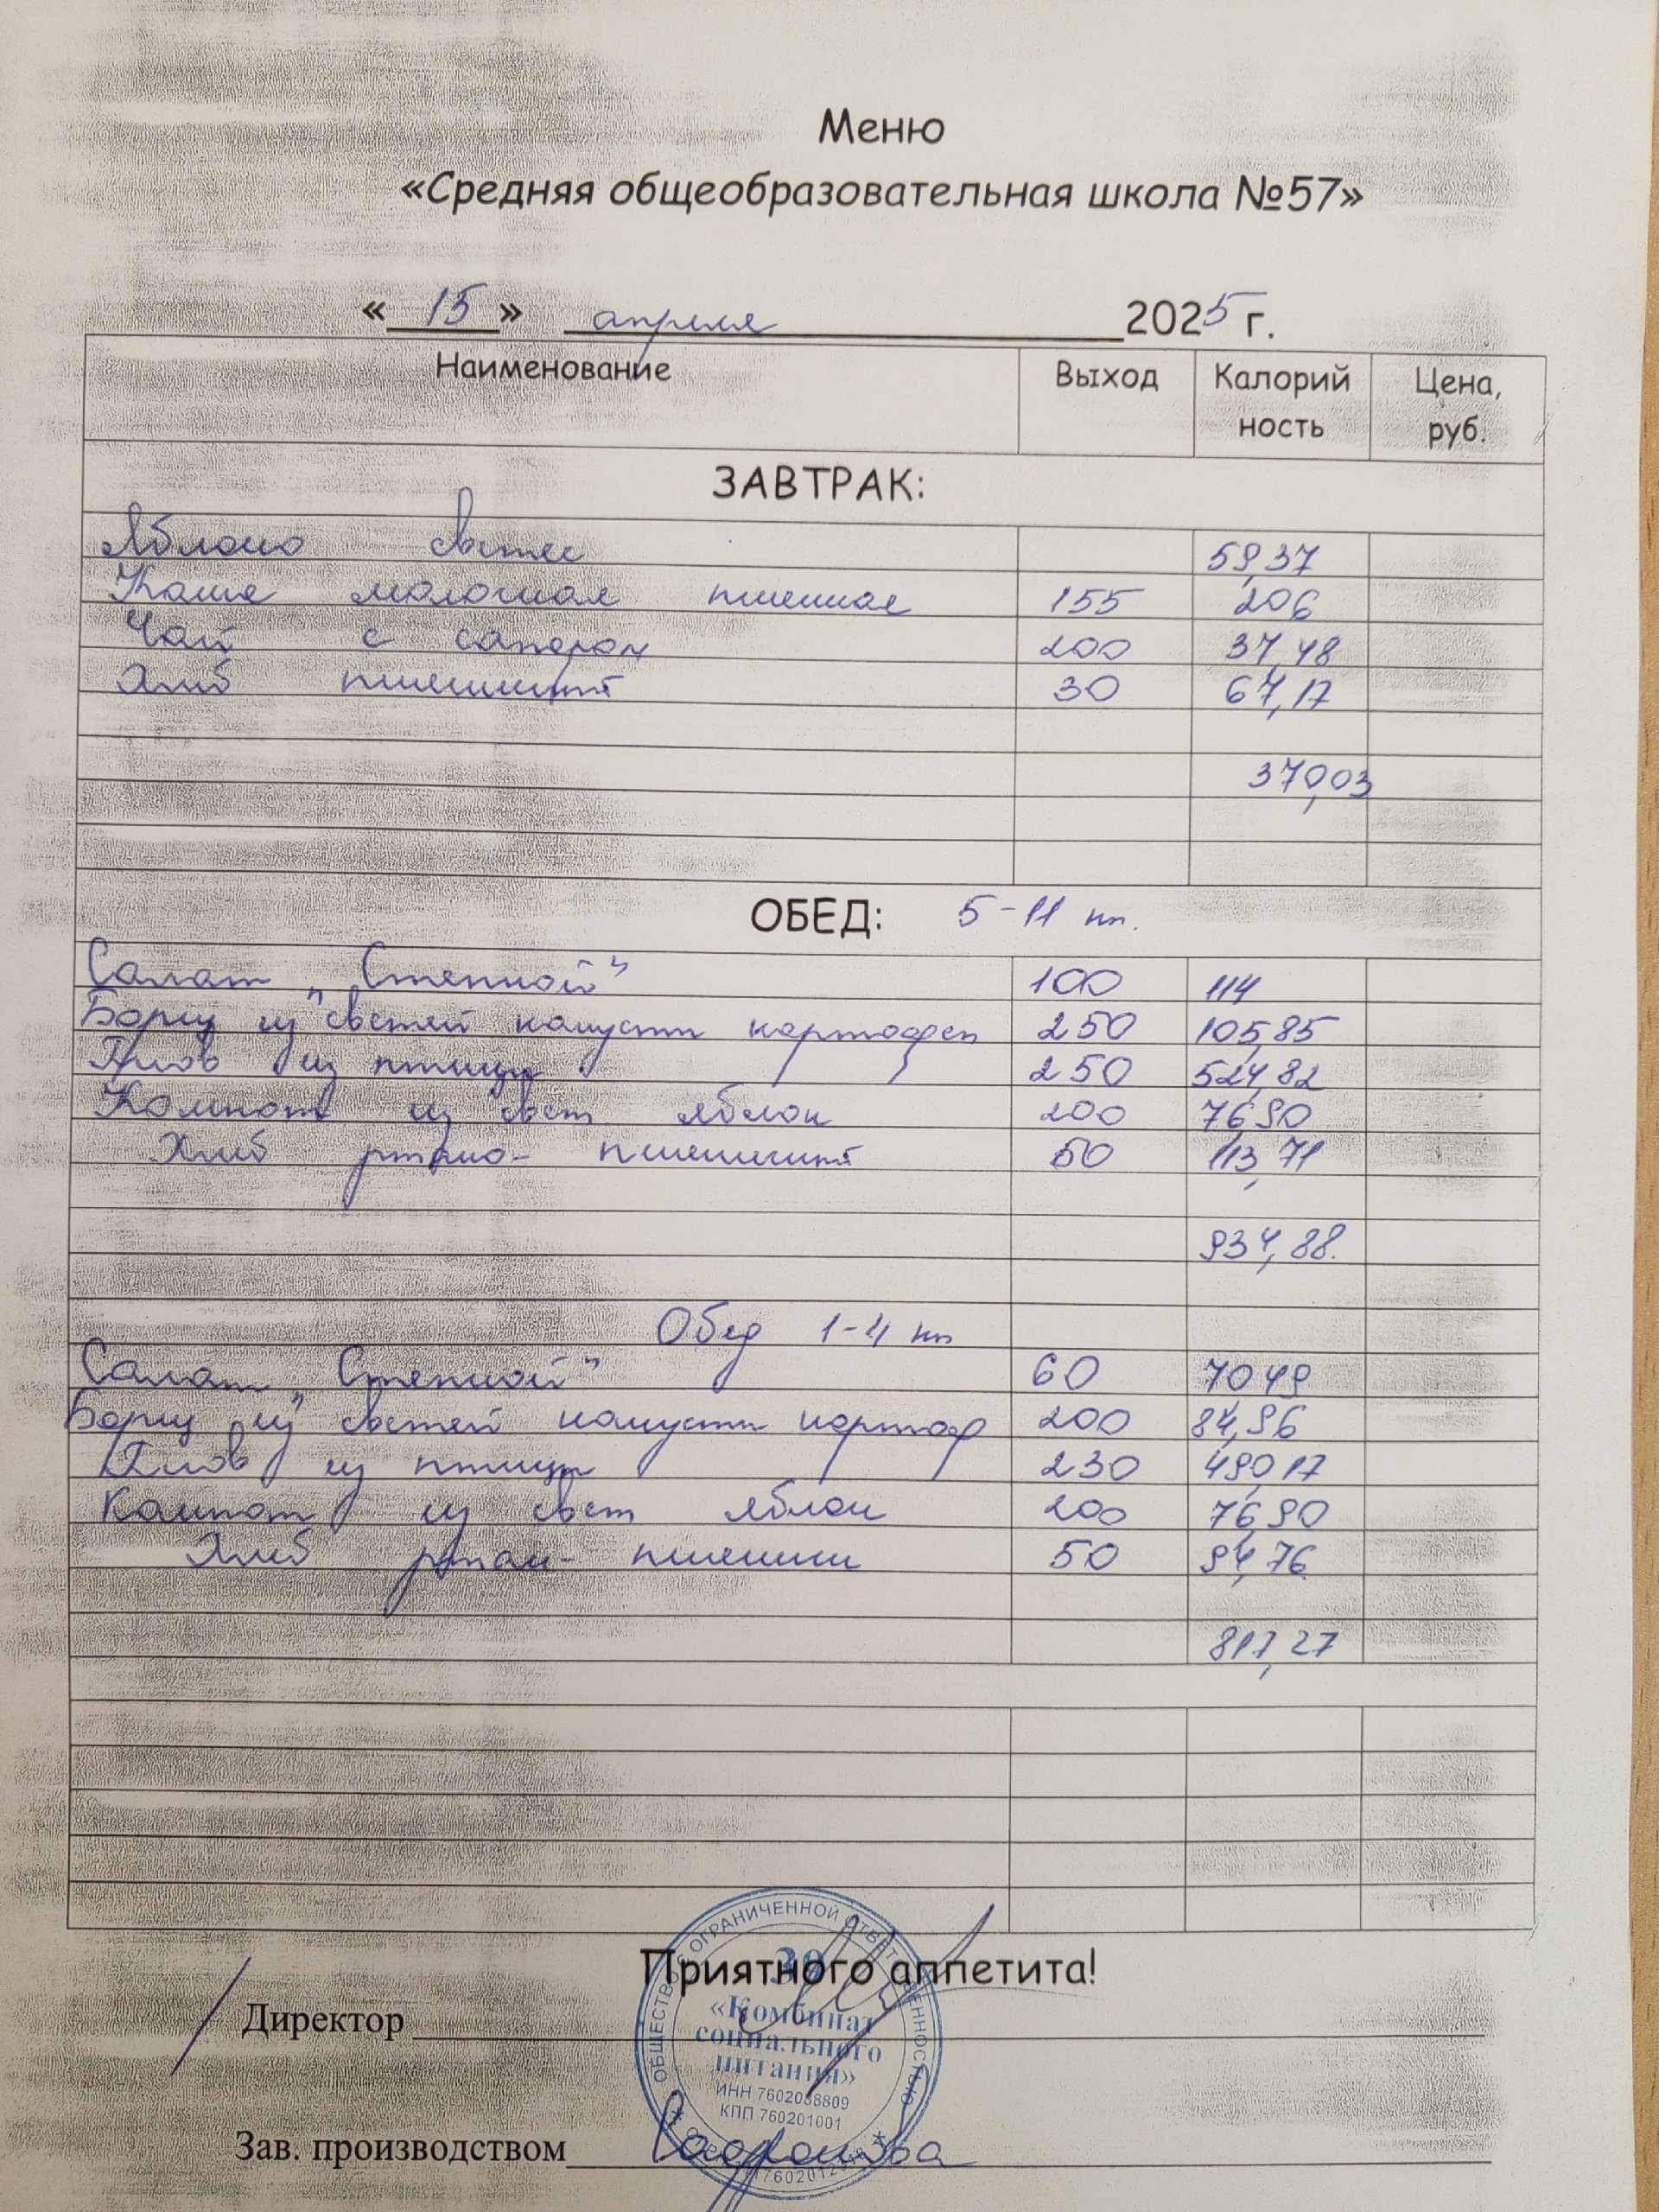 Меню
«Средняя общеобразовательная школа №57»
«15» апреля 2025 г.
Наименование Выход Калорийность Цена, руб.
ЗАВТРАК:
Яблоко свежее 59,37
Каша молочная пшенная 155 206
Чай с сахаром 200 37,48
Хлеб пшеничный 30 67,17
370,03
ОБЕД: 5-11 кл.
Салат „Степной" 100 114
Борщ из свежей капусты картофел 250 105,85
Плов из птицы 250 524,82
Компот из свеж яблок 200 76,90
Хлеб ржано- пшеничный 50 113,71
934,88.
Обед 1-4 кл
Салат „Степной" 60 70,49
Борщ из свежей капусты картоф 200 84,96
Плов из птицы 230 490,17
Компот из свеж яблок 200 76,90
Хлеб ржан- пшенич 50 94,76
817,27
Приятного аппетита!
Директор
ОБЩЕСТВО С ОГРАНИЧЕННОЙ ОТВЕТСТВЕННОСТЬЮ
39
«Комбинат
социального
питания»
ИНН 7602088809
КПП 760201001
Зав. производством